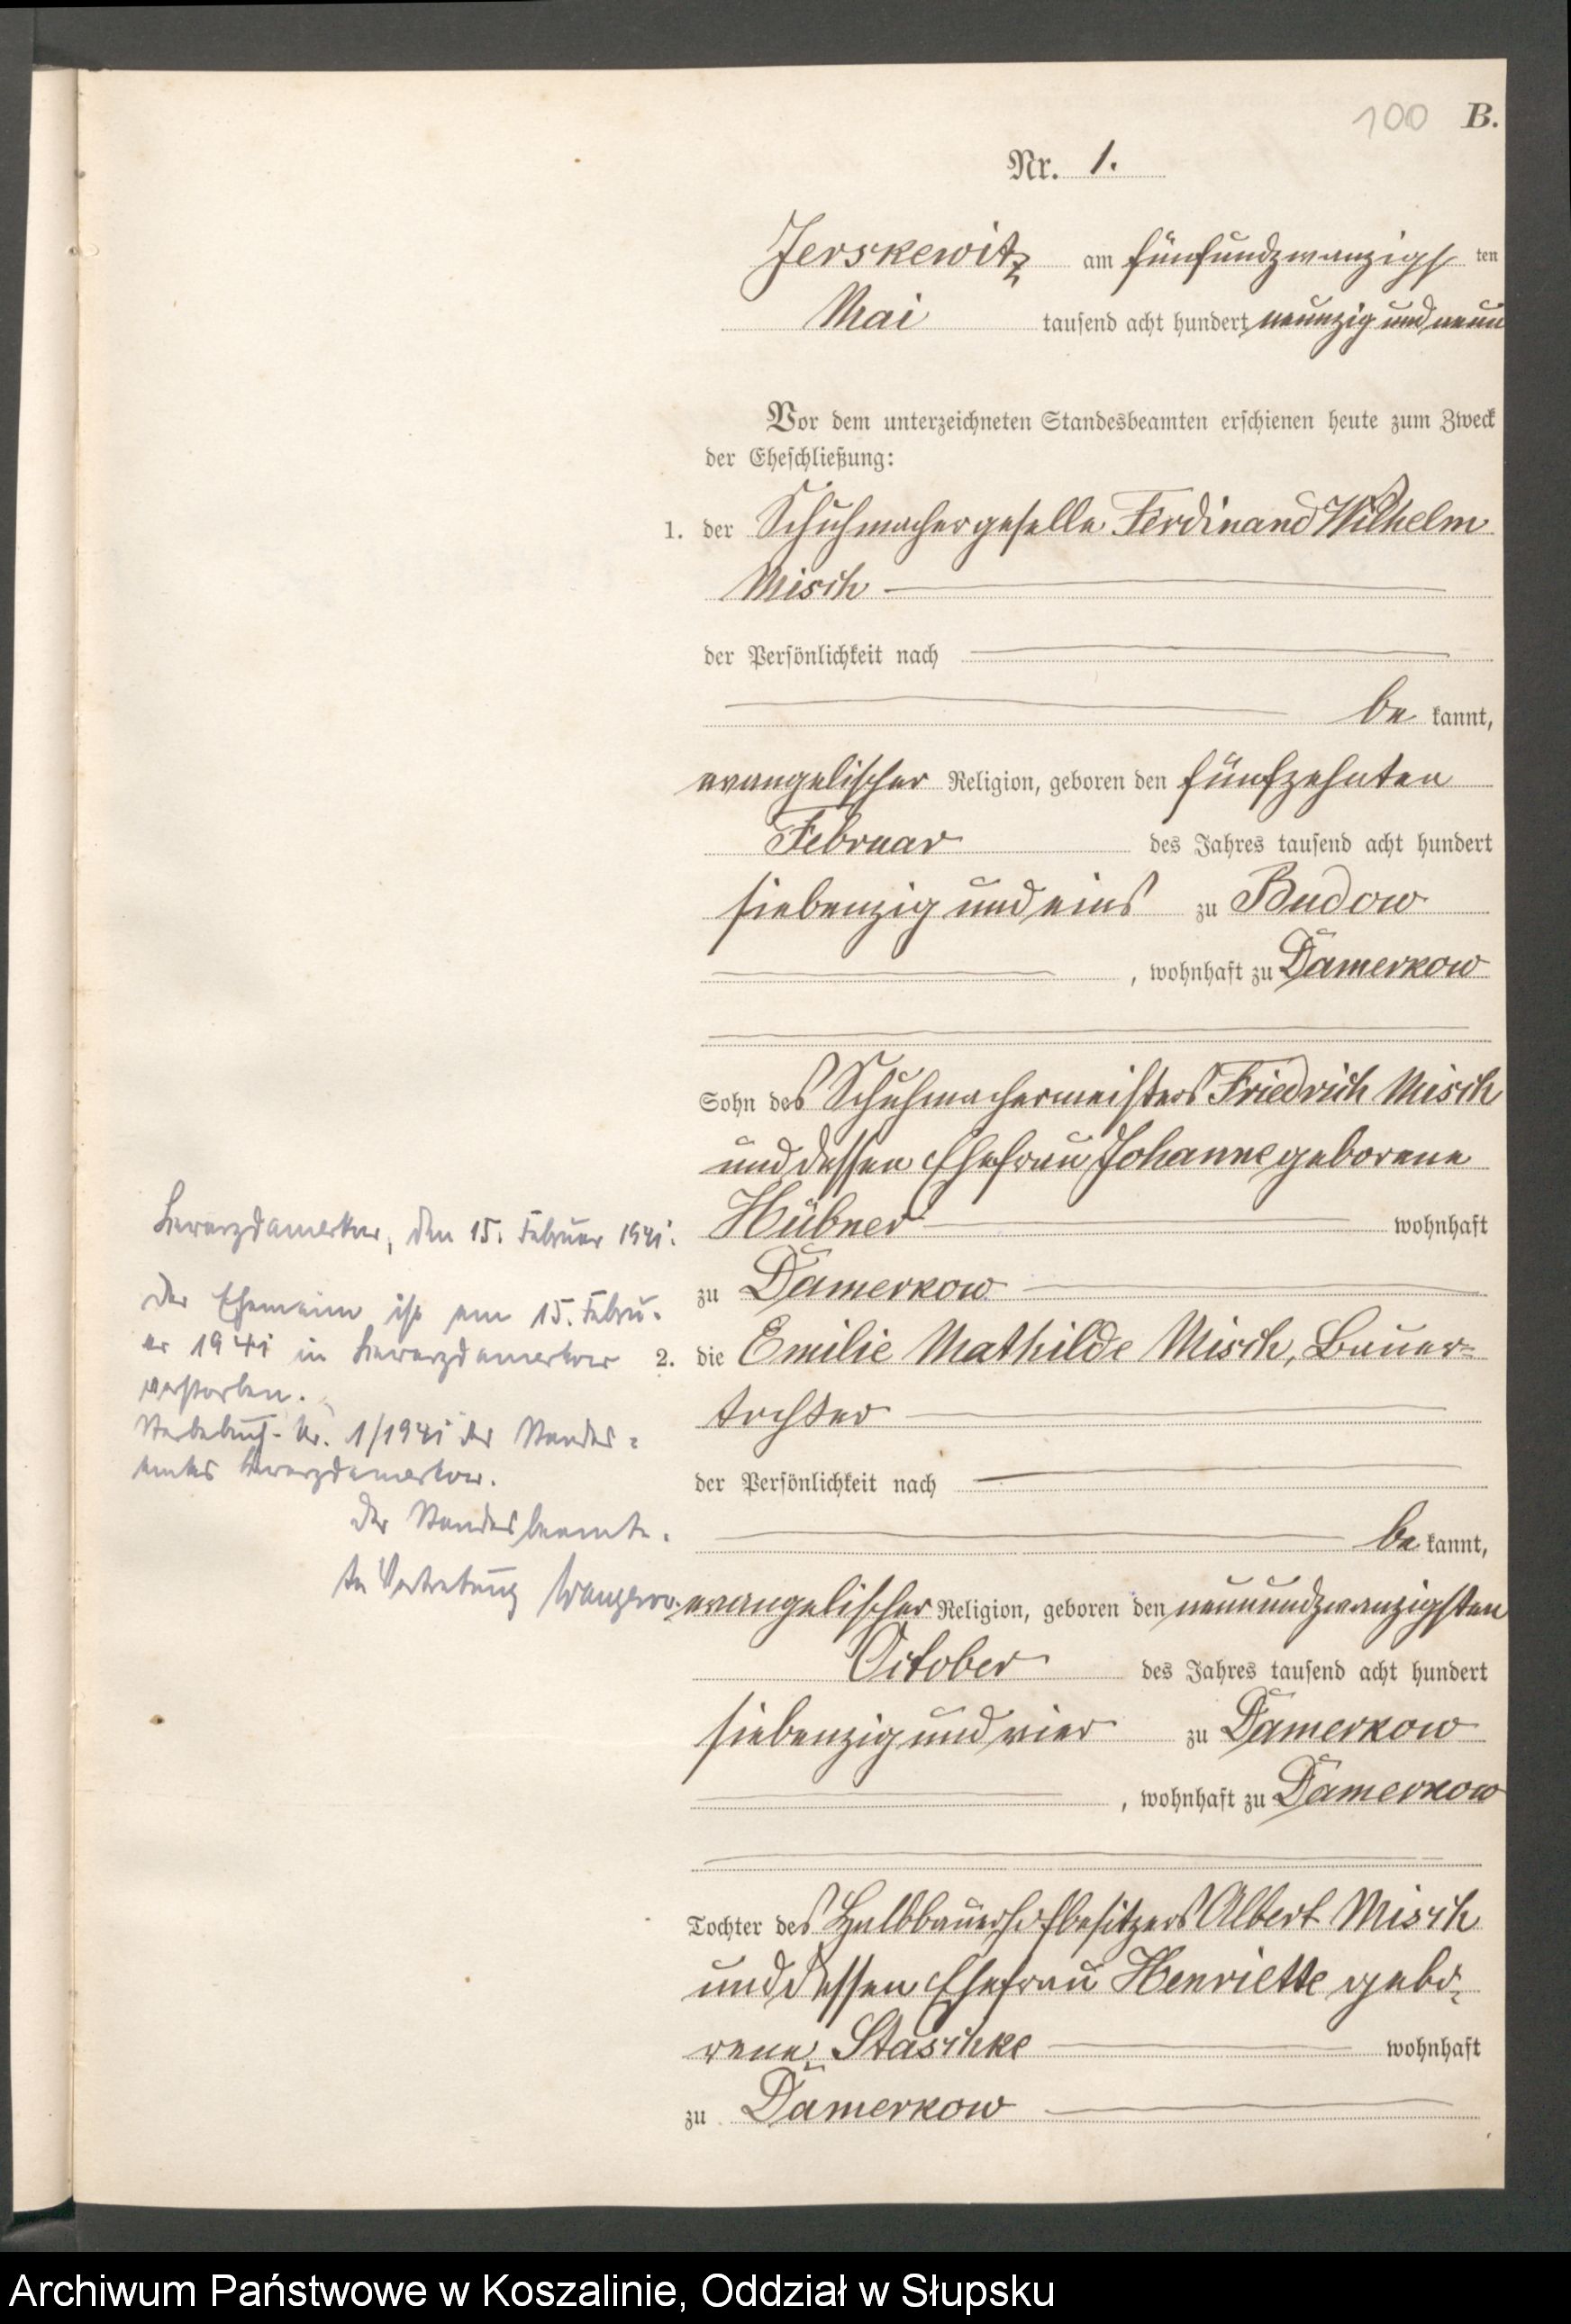 100 B.
Nr. 1.
Jerskewitz am fünfundzwanzigs ten
Mai tausend acht hundert neunzig und neun
Vor dem unterzeichneten Standesbeamten erschienen heute zum Zweck
der Eheschließung:
1. der Schuhmachergeselle Ferdinand Wilhelm
Misch
der Persönlichkeit nach
be kannt,
evangelischer Religion, geboren den fünfzehnten
Februar des Jahres tausend acht hundert
siebenzig und eins zu Budow
, wohnhaft zu Damerkow
Sohn des Schuhmachermeisters Friedrich Misch
und dessen Ehefrau Johanne geborene
Hübner wohnhaft
zu Damerkow
2. die Emilie Mathilde Misch, Bauer-
tochter
der Persönlichkeit nach
be kannt,
evangelischer Religion, geboren den neunundzwanzigsten
October des Jahres tausend acht hundert
siebenzig und vier zu Damerkow
, wohnhaft zu Damerkow
Tochter des Halbbauerhofbesitzers Albert Misch
und dessen Ehefrau Henriette gebo-
rene Staschke wohnhaft
zu Damerkow
Schwarzdamerkow, den 15. Februar 1941.
Der Ehemann ist am 15. Febru-
ar 1941 in Schwarzdamerkow
verstorben.
Sterbebuch-Nr. 1/1941 des Standes-
amtes Schwarzdamerkow.
Der Standesbeamte.
In Vertretung
Archiwum Państwowe w Koszalinie, Oddział w Słupsku